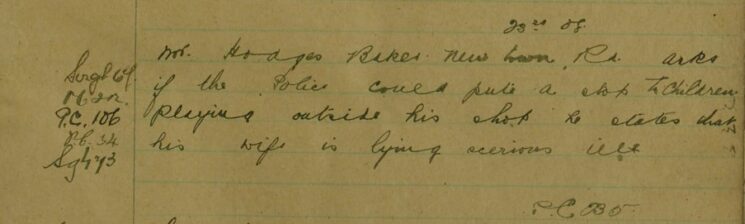 23rd 08.
Mr. Hodges Baker New town Rd. asks
if the Police could put a stop to Children
playing outside his shop he states that
his wife is lying scerious ill
Sergt 64
P.C. 106
P.C. 34
Sgt 73
P.C. 235.